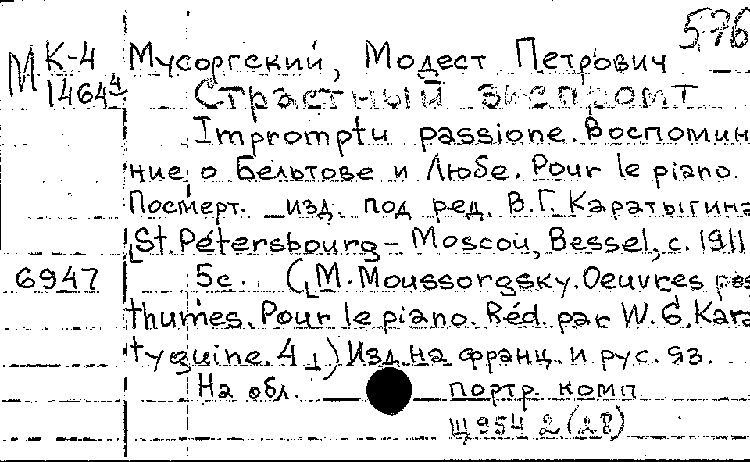 576
М К-4 Мусоргский, Модест Петрович
1464⁴ Страстный экспромт
Impromptu passione. Воспомин
ние о Бельтове и Любе. Pour le piano.
Посмерт. изд. под ред. В.Г. Каратыгина
St. Pétersbourg - Moscou, Bessel, c. 1911
6947 5с. (M. Moussorgsky. Oeuvres pos
thumes. Pour le piano. Réd. par W. G. Kara
tyguine. 4 ) Изд. на франц. и рус. яз.
На обл. портр. комп
Щ954 2(28)